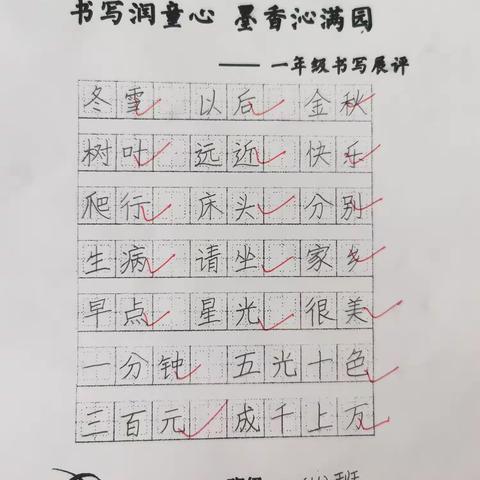 书写润童心 墨香沁满园
—— 一年级书写展评
冬雪 以后 金秋
树叶 远近 快乐
爬行 床头 分别
生病 请坐 家乡
早点 星光 很美
一分钟 五光十色
三百元 成千上万
班